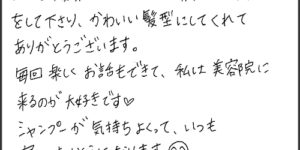 をして下さり、かわいい髪型にしてくれて
ありがとうございます。
毎回楽しくお話もできて、私は美容院に
来るのが大好きです♡
シャンプーが気持ちよくって、いつも